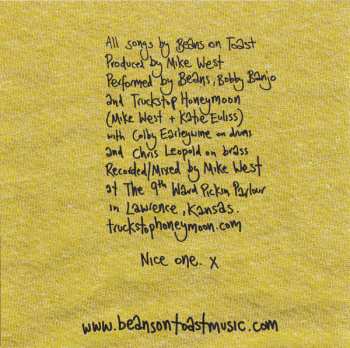 All songs by Beans on Toast
Produced by Mike West
Performed by Beans, Bobby Banjo
and Truckstop Honeymoon
(Mike West + Katie Euliss)
with Colby Earleywine on drums
and Chris Leopold on brass
Recorded/Mixed by Mike West
at The 9th Ward Pickin Parlour
in Lawrence, Kansas.
truckstophoneymoon.com
Nice one. x
www.beansontoastmusic.com